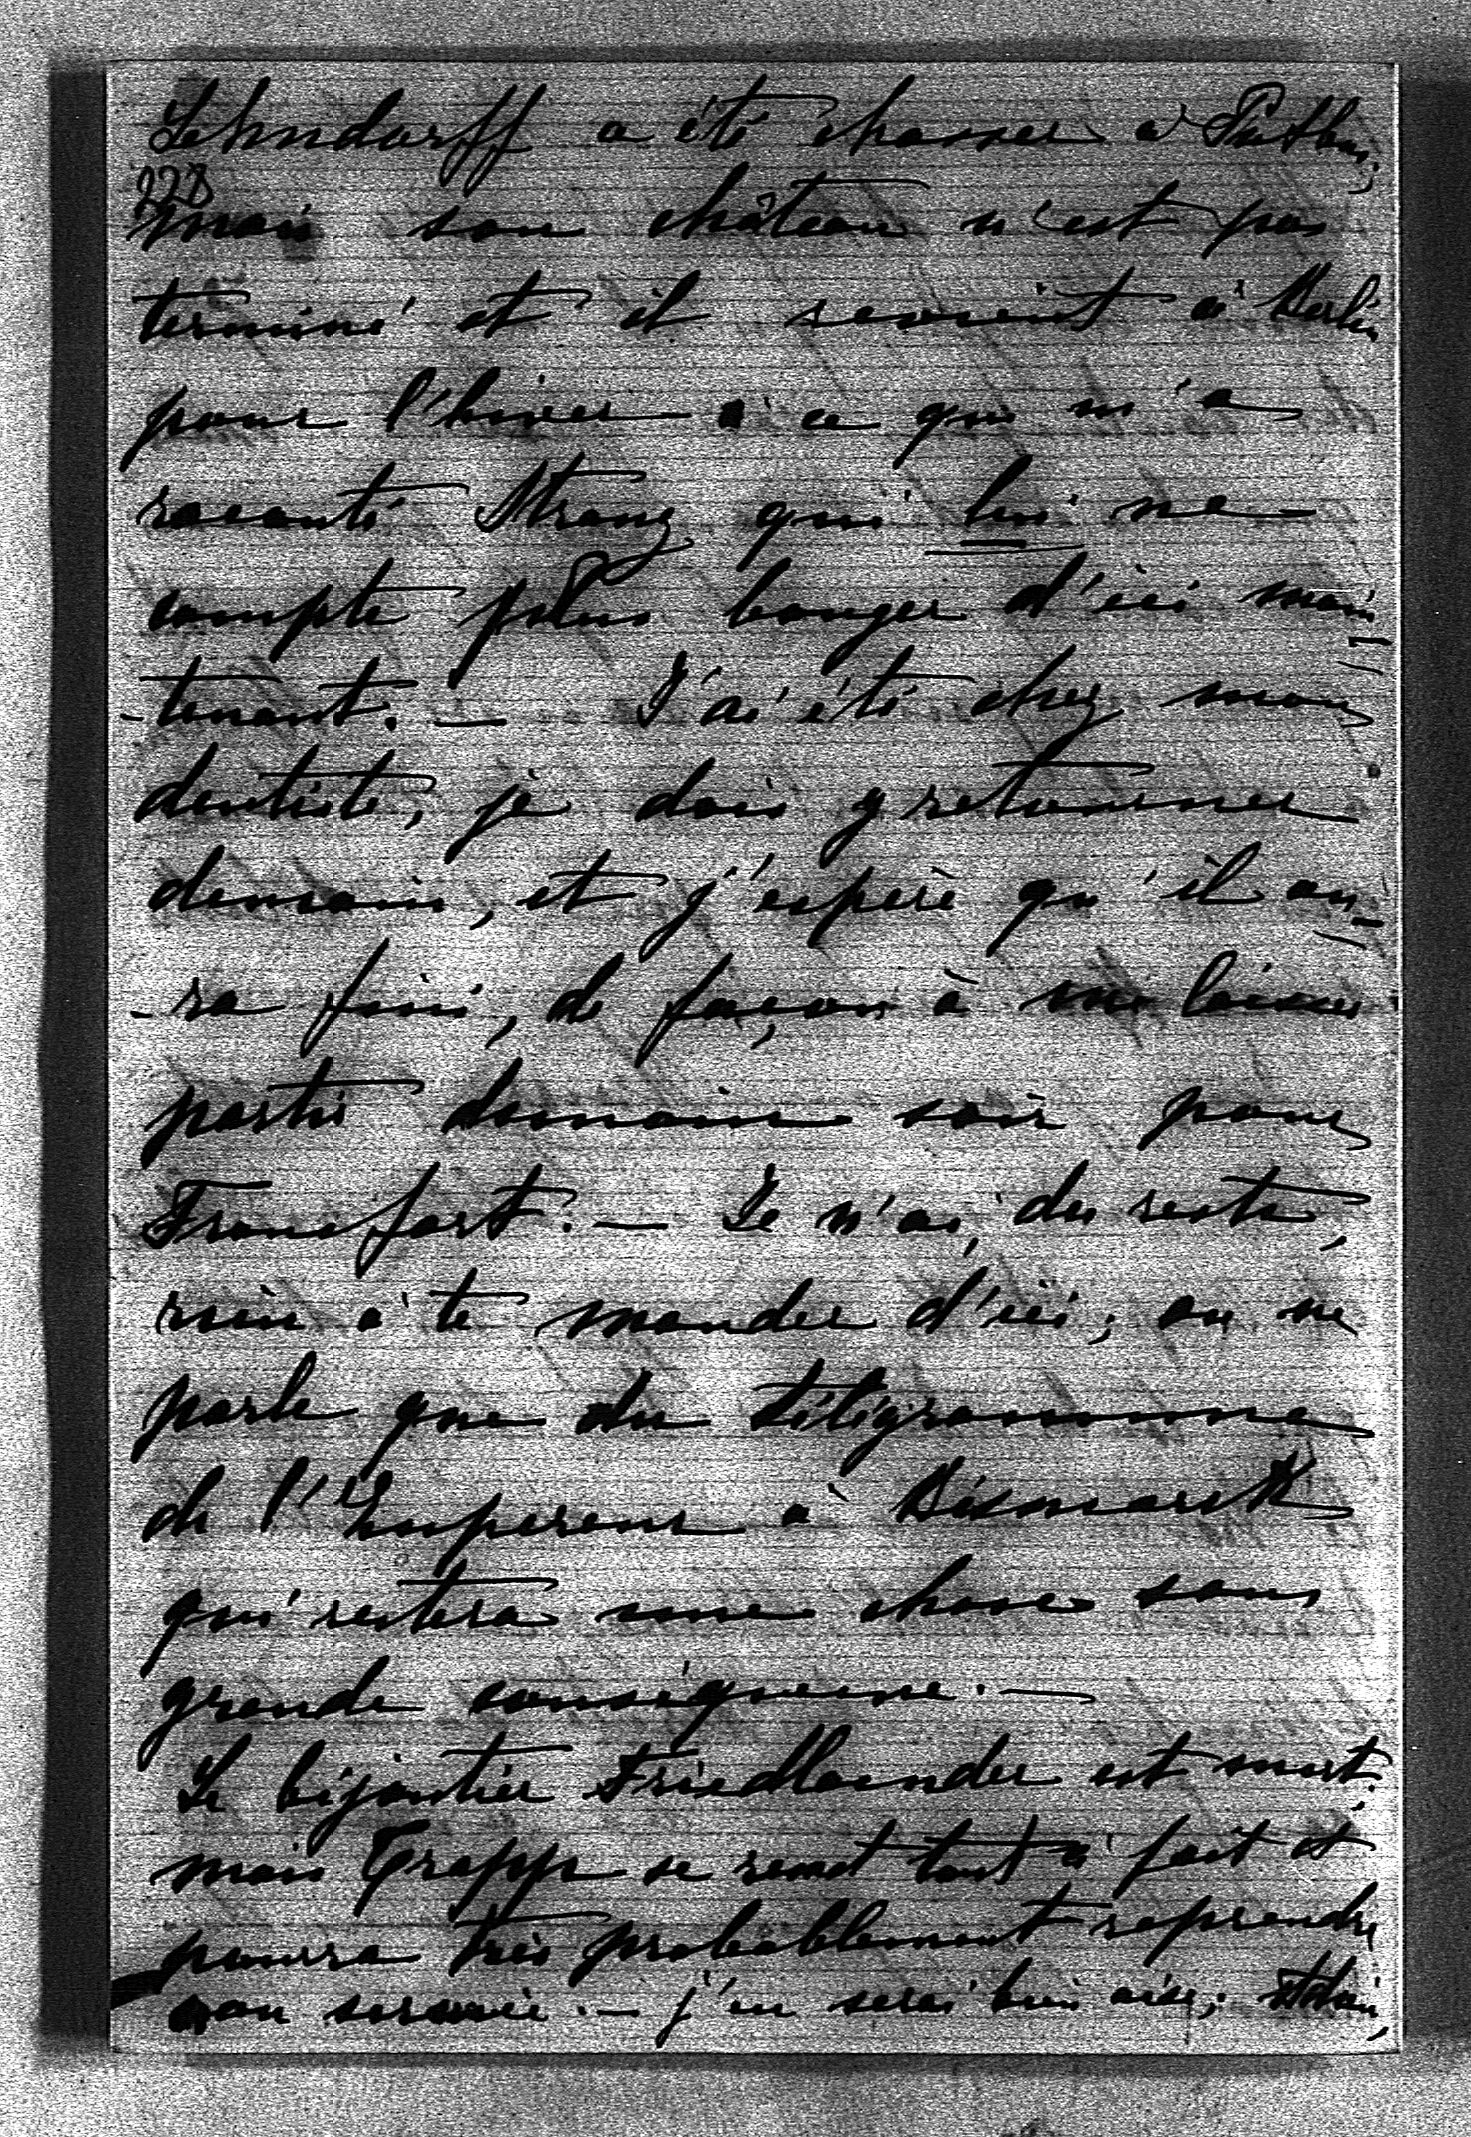 Lehndorff a été chasser à Putbus;
228
mais son château n'est pas
terminé et il revient à Berlin
pour l'hiver à ce que m'a
raconté Stranz qui lui ne
compte plus bouger d'ici main
-tenant. — J'ai été chez mon
dentiste, je dois y retourner
demain, et j'espère qu'il au-
-ra fini, de façon à me laisser
partir demain soir pour
Francfort. — Je n'ai, du reste,
rien à te mander d'ici; on ne
parle que du télégramme
de l'Empereur à Bismarck
qui restera une chose sans
grande conséquence. —
Le bijoutier Friedlaender est mort.
mais Trapp se remet tout à fait et
pourra très probablement reprendre
son service. — j'en serai bien aise;